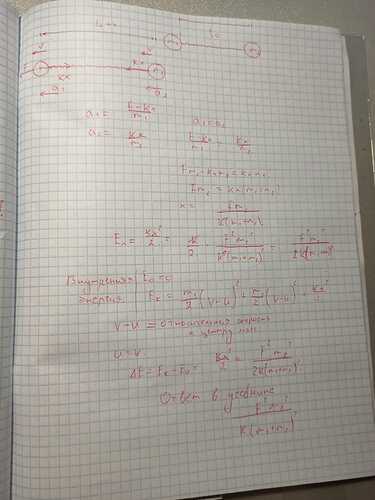 L₀+x L₀
m₁ m₂
v v
F kx kx m₂
a₁ a₂
a₁ = (F-kx)/m₁ a₁=a₂
a₂ = kx/m₂ (F-kx)/m₁ = kx/m₂
Fm₂-kxm₂=kxm₁
Fm₂ = kx(m₁+m₂)
x = Fm₂/(k(m₁+m₂))
Eₙ = kx²/2 = k/2 · F²m₂²/(k²(m₁+m₂)²) = F²m₂²/(2k(m₁+m₂)²)
Внутренняя E₀=0
энергия Eₖ = m₁/2 (v-u)² + m₂/2 (v-u)² + kx²/2
v-u = относительная скорость
к центру масс
u=v kx²/2 = F²m₂²/(2k(m₁+m₂)²)
ΔE = Eₖ-E₀ =
Ответ в учебнике
F²m₂²/(k(m₁+m₂)²)